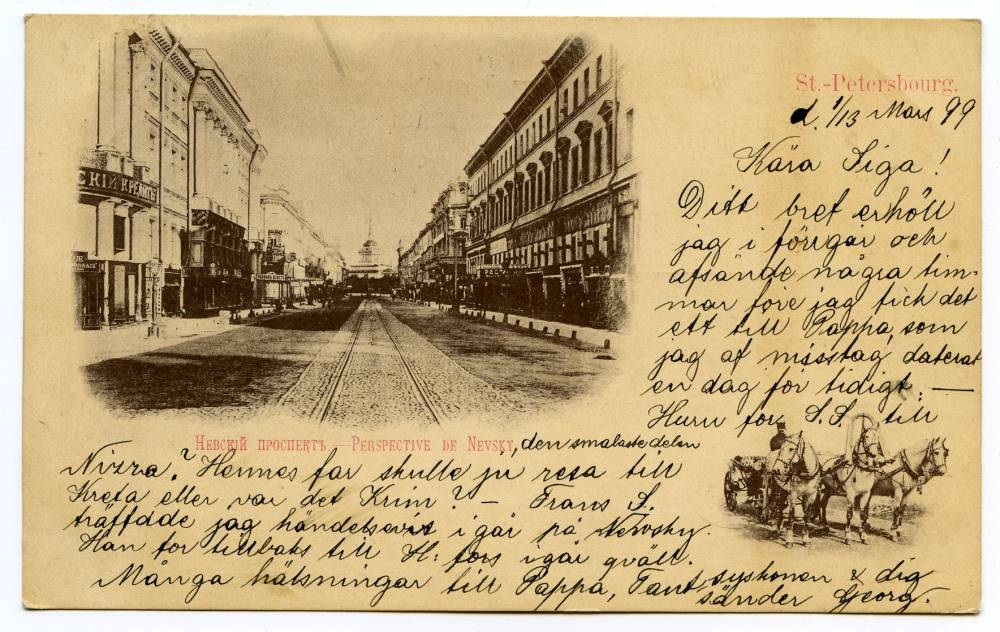 St.-Petersbourg.
d. 1/13 Mars 99
Kära Siga!
Ditt bref erhöll
jag i förrgår och
afsände några tim-
mar före jag fick det
ett till Pappa, som
jag af misstag daterat
en dag för tidigt. —
Hurn for S.S. till
Nizza? Hennes far skulle ju resa till
Kreta eller var det Krim? — Frans S.
träffade jag händelsevis i går på Nevsky.
Han for tillbaks till H:fors igår qväll.
Många hälsningar till Pappa, Tant, syskonen & dig
sänder Georg.
Невскій проспектъ. — Perspective de Nevsky, den smalaste delen
СКІЙ КРЕДИТЪ